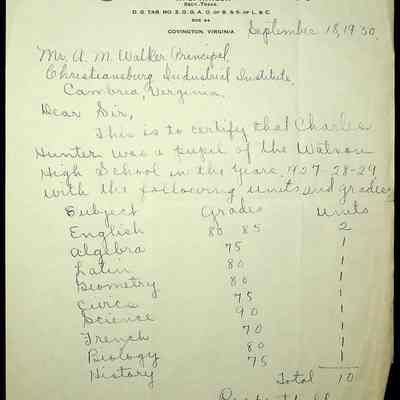 SECY.-TREAS.
D. G. TAB. NO. 2, G. G. A. O. OF B. & S. OF L. & C.
BOX 44
COVINGTON, VIRGINIA
September 18, 1930.
Mr. A. M. Walker Principal,
Christiansburg Industrial Institute,
Cambria, Virginia.
Dear Sir,
This is to certify that Charles
Hunter was a pupil of the Watson
High School in the years, 927-28-29
with the following units and grades
Subject Grades Units
English 80 85 2
Algebra 75 1
Latin 80 1
Geometry 80 1
Civics 75 1
Science 90 1
French 70 1
Biology 80 1
History 75 1
Total 10